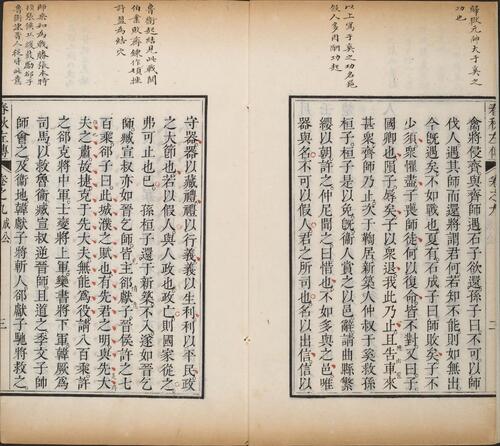 禽將侵齊與齊師遇石子欲還孫子曰不可以師
伐人遇其師而還將謂君何若知不能則如無出
今既遇矣不如戰也夏有石成子曰師敗矣子不
少須眾懼盡子喪師徒何以復命皆不對又曰子
國卿也隕子辱矣子以眾退我此乃止且告車來
甚眾齊師乃止次于鞫居新築人仲叔于奚救孫
桓子桓子是以免既衞人賞之以邑辭請曲縣繁
纓以朝許之仲尼聞之曰惜也不如多與之邑唯
器與名不可以假人君之所司也名以出信信以
以上寫于奚之功名
功也
二
守器器以藏禮禮以行義義以生利利以平民政
之大節也若以假人與人政也政亡則國家從之
弗可止也已　孫桓子還于新築不入遂如晉乞
師臧宣叔亦如晉乞師皆主郤獻子晉侯許之七
百乘郤子曰此城濮之賦也有先君之明與先大
夫之肅故捷克于先大夫無能為役請八百乘許
之郤克將中軍士燮將上軍欒書將下軍韓厥為
司馬以救魯衞臧宣叔逆晉師且道之季文子帥
師會之及衞地韓獻子將斬人郤獻子馳將救之
魯衞起結見此戰關
許盟為結穴
春秋左傳
卷之九 成公
三